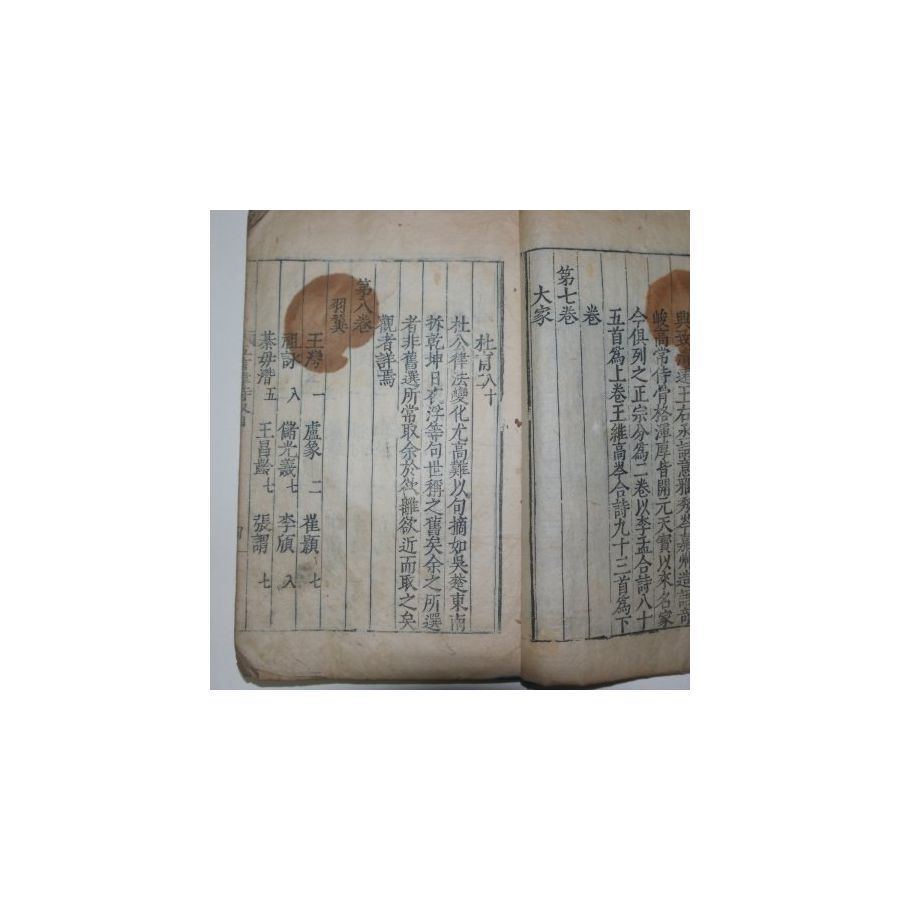 峻高常侍骨格渾厚皆開元天寶以來名家
今俱列之正宗分為二卷以李孟合詩八十
五首為上卷王維高岑合詩九十三首為下
卷
第七卷
大家
杜甫八十二
杜公律法變化尤高難以句摘如吳楚東南
拆乾坤日夜浮等句世稱之舊矣余之所選
者非舊選所常取余於欲離欲近而取之矣
觀者詳焉
第八卷
羽翼
王灣一 盧象二 崔顥七
祖詠八 儲光羲七 李頎八
綦毋潛五 王昌齡七 張謂七